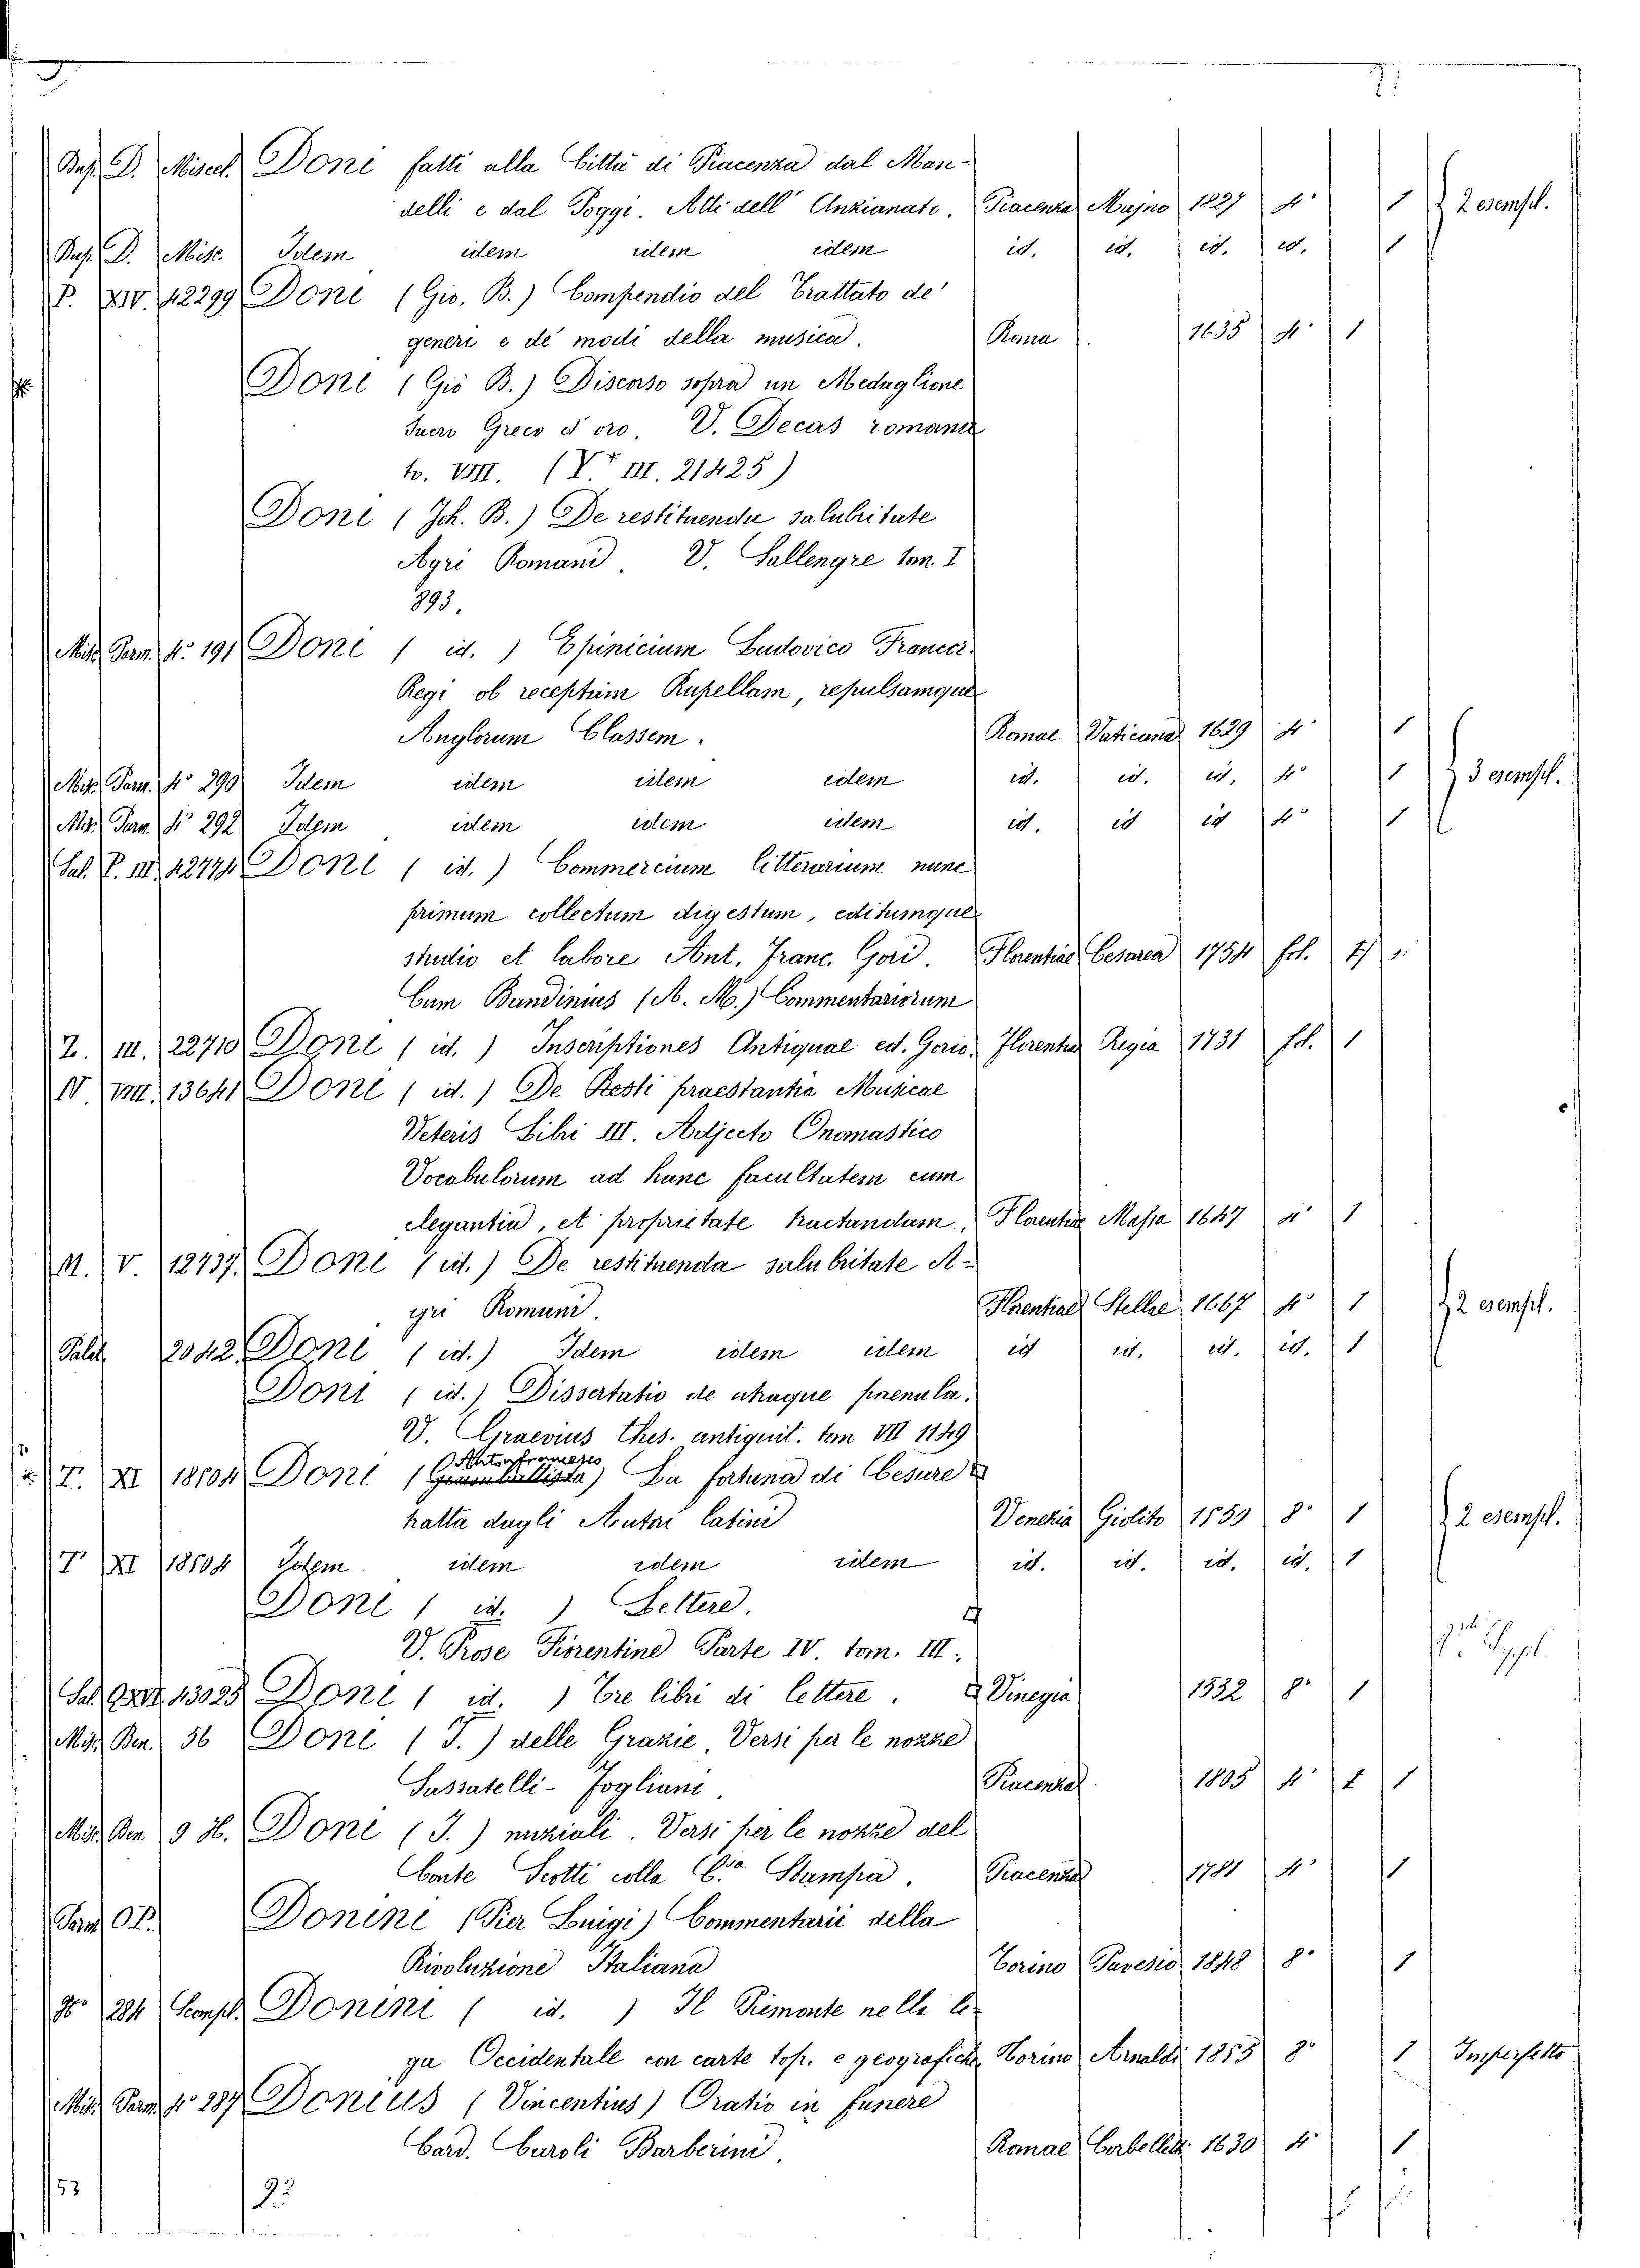 Bas. D. Miscel. Doni fatti alla Città di Piacenza dal Man-
delli e dal Poggi. Atti dell' Anzianato. Piacenza Majno 1827 4° 1 2 esempl.
Bas. D. Misc. Idem idem idem idem id. id. id. id. 1
P. XIV. 42299 Doni (Gio. B.) Compendio del Trattato de'
generi e dè modi della musica. Roma 1635 4° 1
Doni (Giò B.) Discorso sopra un Medaglione
Sacro Greco d'oro. V. Decas romana
to. VIII. (V+ III. 21425)
Doni (Joh. B.) De restituenda salubritate
Agri Romani. V. Sallengre tom. I
893.
Misc. Parm. 4° 191 Doni ( id. ) Epinicium Ludovico Francor.
Regi ob receptam Rupellam, repulsamque
Anglorum Classem. Romae Vaticana 1629 4° 1
Misc. Parm. 4° 290 Idem idem idem idem id. id. id. 4° 1 3 esempl.
Misc. Parm. 4° 292 Idem idem idem idem id. id id 4° 1
Sal. P. III. 42774 Doni ( id. ) Commercium litterarium nunc
primum collectum digestum, editumque
studio et labore Ant. Franc. Gori. Florentiae Cesarea 1754 fol.
Cum Bandinius (A. M.) Commentariorum
Z. III. 22710 Doni ( id. ) Inscriptiones Antiquae ed. Gorio. Florentiae Regia 1731 fol. 1
N. VIII. 13641 Doni ( id. ) De Resti praestantia Musicae
Veteris Libri III. Adjecto Onomastico
Vocabulorum ad hanc facultatem cum
elegantia, et proprietate tractandam. Florentiae Massa 1647 4° 1
M. V. 12737. Doni ( id. ) De restituenda salubritate A-
gri Romani. Florentiae Stellae 1667 4° 1 2 esempl.
Palat. 2042. Doni ( id. ) Idem idem idem id id. id. id. 1
Doni ( id. ) Dissertatio de utraque paenula.
V. Graevius Thes. antiquit. tom VII 1149
T. XI 18504 Doni ( Antonfrancesco ) La fortuna di Cesare
tratta dagli Autori latini Venezia Giolito 1550 8° 1 2 esempl.
T XI 18504 Idem idem idem idem id. id. id. id. 1
Doni ( id. ) Lettere.
V. Prose Fiorentine Parte IV. tom. III.
Sal. 13025 Doni ( id. ) Tre libri di lettere. Vinegia 1552 8° 1
Misc. Ben. 56 Doni ( I. ) delle Grazie, Versi per le nozze
Sassatelli-Fogliani. Piacenza 1805 4° 1
Misc. Ben 9 H. Doni ( I. ) nuziali. Versi per le nozze del
Conte Scotti colla C.sa Stampa. Piacenza 1781 4° 1
Donini (Pier Luigi) Commentarii della
Rivoluzione Italiana Torino Pavesio 1848 8° 1
284 Donini ( id. ) Il Piemonte nella le-
ga Occidentale con carte top. e geografiche Torino Arnaldi 1855 8° 1 Imperfetto
Misc. Parm. 4° 287 Donius (Vincentius) Oratio in funere
Card. Caroli Barberini. Romae Corbelletti 1630 4° 1
53